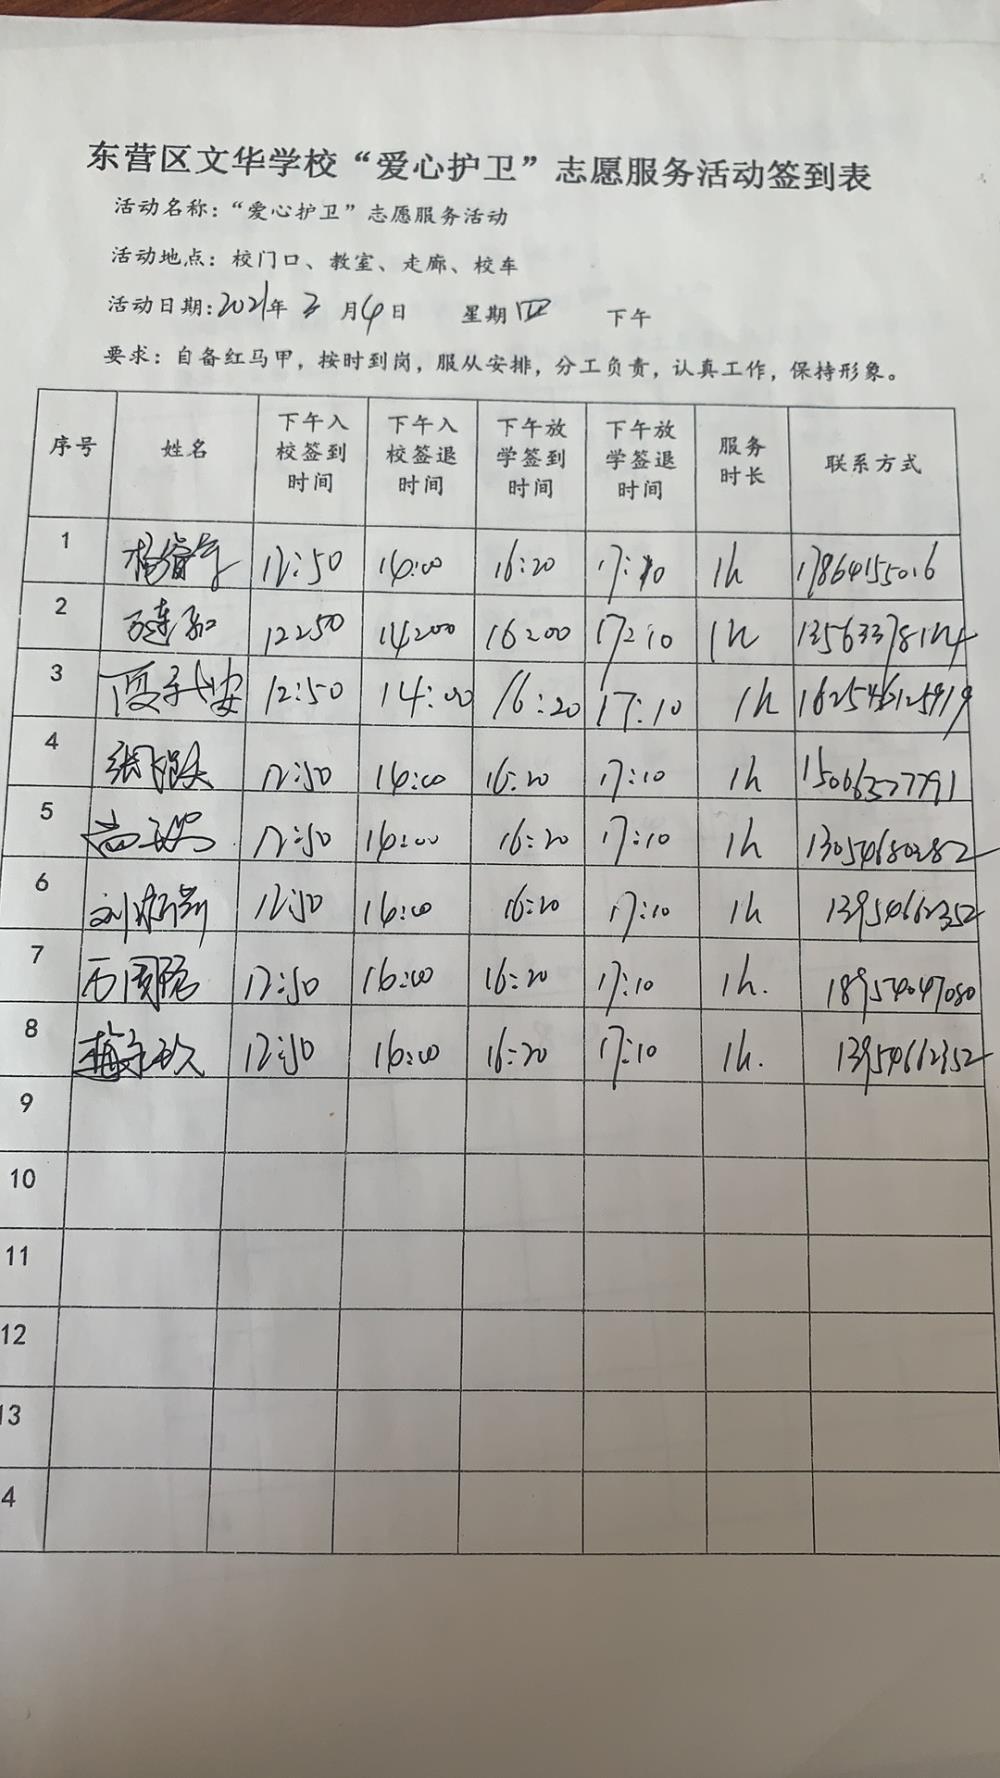 东营区文华学校“爱心护卫”志愿服务活动签到表
活动名称：“爱心护卫”志愿服务活动
活动地点：校门口、教室、走廊、校车
活动日期：2021年 3 月 4 日 星期 四 下午
要求：自备红马甲，按时到岗，服从安排，分工负责，认真工作，保持形象。
序号 姓名 下午入校签到时间 下午入校签退时间 下午放学签到时间 下午放学签退时间 服务时长 联系方式
1 12:50 14:00 16:20 17:10 1h 17864155016
2 12:50 14:00 16:00 17:10 1h
3 12:50 14:00 16:20 17:10 1h
4 12:50 14:00 16:20 17:10 1h
5 12:50 14:00 16:20 17:10 1h 13054680282
6 12:50 14:00 16:20 17:10 1h 13954662352
7 12:50 14:00 16:20 17:10 1h. 18954047080
8 12:50 14:00 16:20 17:10 1h. 13954662352
9
10
11
12
13
4